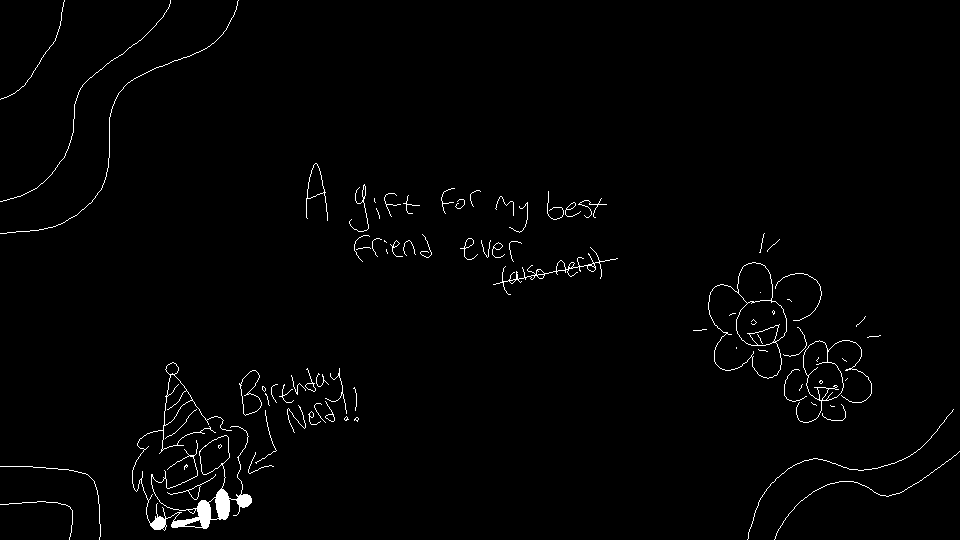 A gift for my best
friend ever
(also nerd)
Birthday
Nerd!!